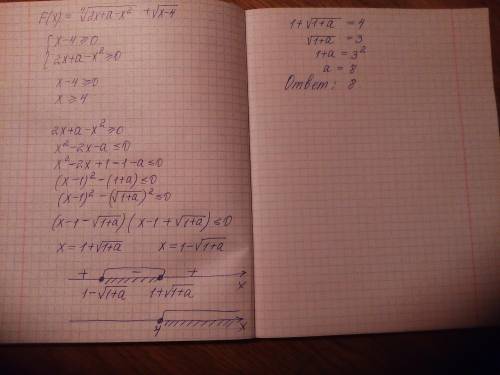 F(x) = ⁴√(2x+a-x²) + √(x-4)
{ x-4≥0
2x+a-x²≥0
x-4≥0
x≥4
2x+a-x²≥0
x²-2x-a≤0
x²-2x+1-1-a≤0
(x-1)²-(1+a)≤0
(x-1)²-(√(1+a))²≤0
(x-1-√(1+a))(x-1+√(1+a))≤0
x=1+√(1+a) x=1-√(1+a)
+ - +
1-√(1+a) 1+√(1+a) x
4 x
1+√(1+a) = 4
√(1+a) = 3
1+a = 3²
a = 8
Ответ: 8